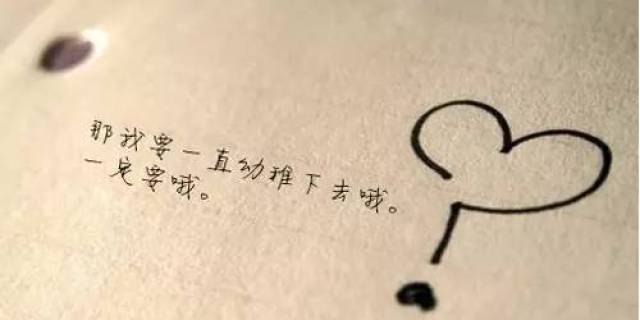 那我要一直幼稚下去哦。
一定要哦。